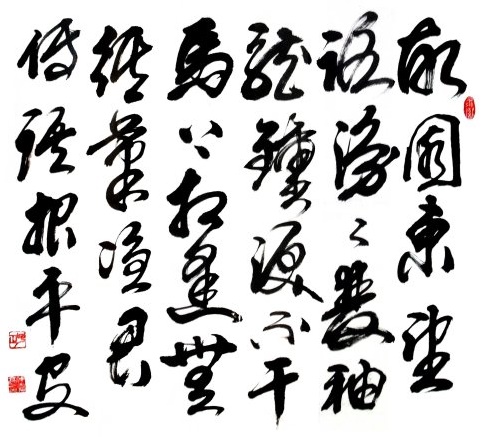 故園東望
路漫〻雙袖
龍鍾淚不干
馬上相逢無
紙筆憑君
傳語報平安